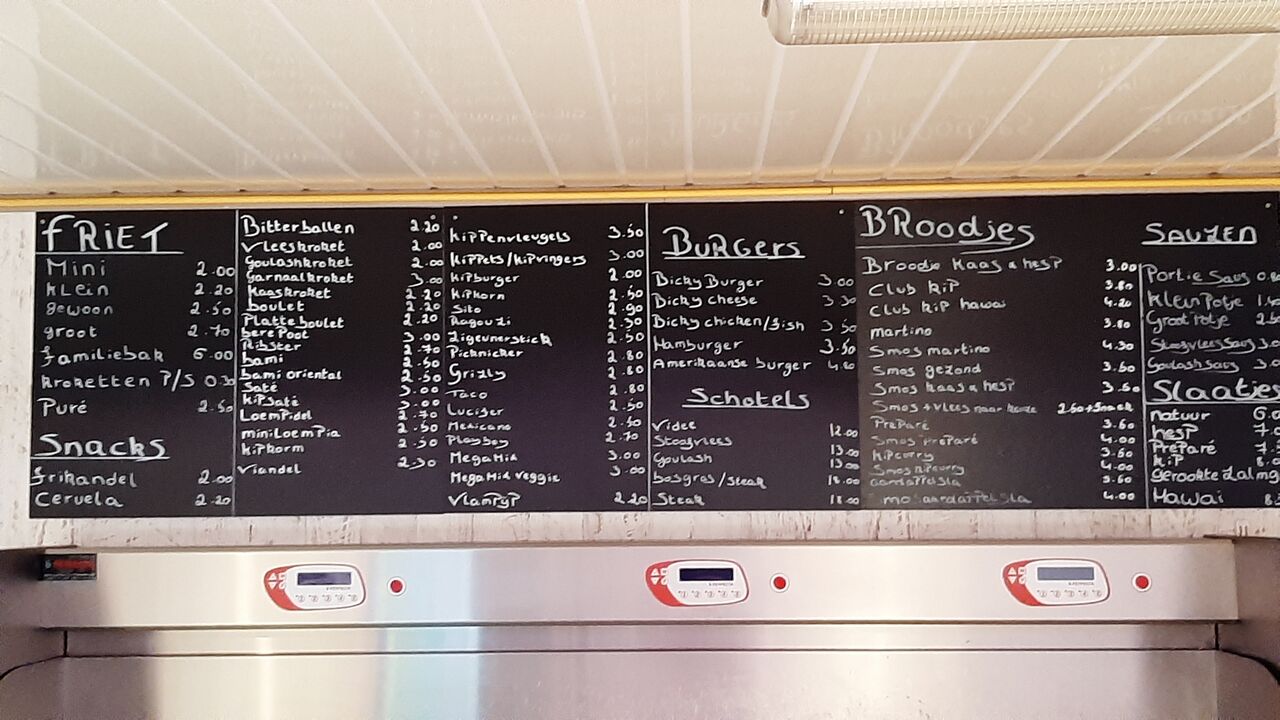 FRIET
Mini 2.00
Klein 2.20
gewoon 2.50
groot 2.70
familiebak 6.00
kroketten P/S 0.30
Puré 2.50
Snacks
frikandel 2.00
Cervela 2.20
Bitterballen 2.20
Vleeskroket 2.00
Goulashkroket 2.00
Garnaalkroket 3.00
Kaaskroket 2.20
boulet 2.20
Platte boulet 2.20
berepoot 3.00
Ribster 2.70
bami 2.50
bami oriental 2.50
Saté 3.00
KipSaté 3.00
Loempidel 2.70
miniLoempia 2.50
kipkorm 2.50
Viandel 2.30
Kippenvleugels 3.50
Kippets/Kipvingers 3.00
Kipburger 2.00
Kipkorn
Sito
Ragouzi
Zigeunerstick
Picknicker
Grizly
Taco
Lucifer
Mexicano
Playboy
MegaMid 3.00
MegaMid Veggie 3.00
Vlampyp 2.20
BURGERS
Bicky Burger 3.00
Bicky cheese 3.30
Bicky chicken/fish 3.50
Hamburger 3.50
Amerikaanse burger
Schotels
Videe 12.00
Stoofvlees 13.00
Goulash 13.00
bosgras/Steak 18.00
Steak 18.00
BRoodjes
Broodje Kaas & hesp 3.00
Club kip
Club kip hawai 4.20
martino
Smos martino
Smos gezond
Smos kaas & hesp 3.50
Smos + vlees naar keuze 2.50+Snack
Preparé
Smos Preparé 4.00
kipcurry
Smos kipcurry 4.00
aardappelsla
Smos aardappelsla 4.00
SAUZEN
Portie Saus
Klein Potje
Groot Potje
Stoofvlees Saus
Goulash Saus
Slaatjes
natuur
hesp
Preparé
KiP
gerookte zalm
Hawai